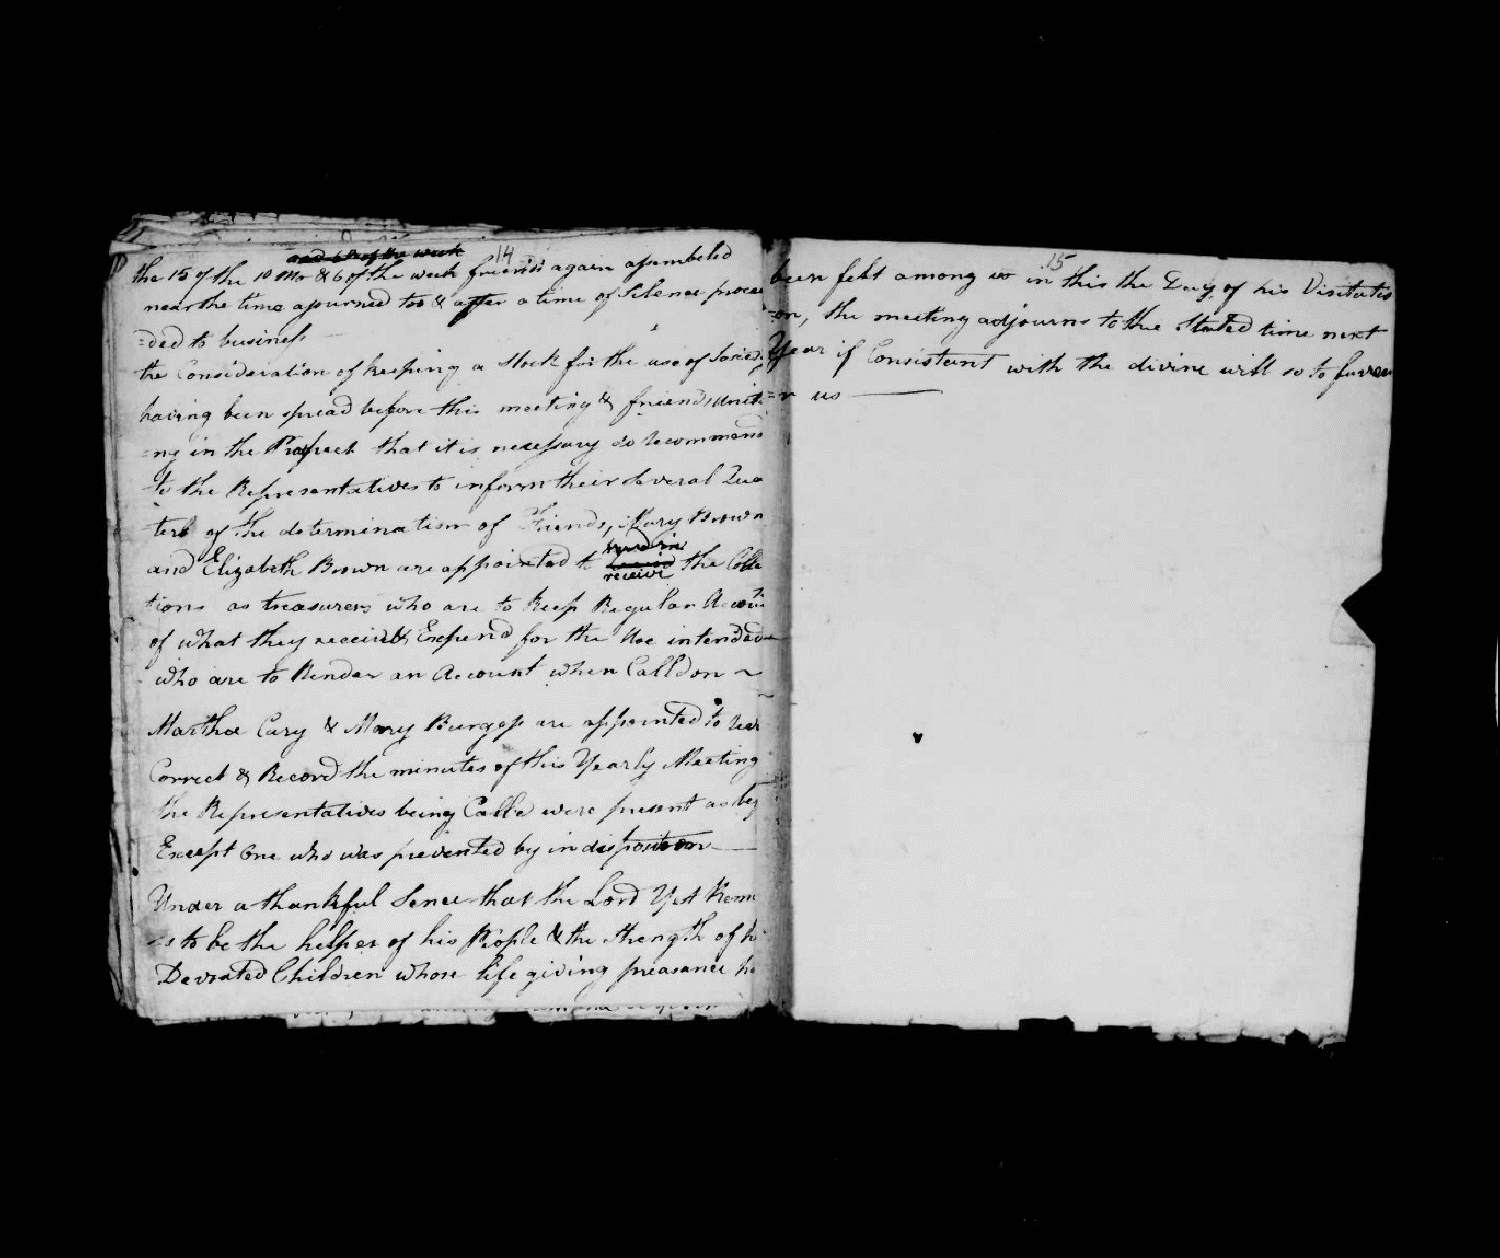 14
and 6th of the week
the 15 of the 10 Mo & 6 of the week friends again assembled
near the time ajourned too & after a time of Silence procee
=ded to business
the Consideration of keeping a stock for the use of Societ
having been spread before this meeting & friends unit
=ng in the Prospect that it is necessary do Recommend
to the Representatives to inform their several Qua
ters of the determination of Friends, Mary Brown
and Elizabeth Brown are appointed to receive the Colle
tions as treasurers who are to keep Regular Accounts
of what they receive & Expend for the Use intended
who are to Render an Account when Calld on ~
Martha Cary & Mary Burgess are appointed to
Correct & Record the minutes of this Yearly Meeting
the Representatives being Calld were present
Except One who was prevented by indisposition
Under a thankful Sence that the Lord Yet Rem
=s to be the helper of his People & the strength of
Devoted Children whose life giving preasance ha
15
been felt among us in this the Day of his Visitatio
=on, the meeting adjourns to the Stated time next
Year if Consistant with the divine will so to favou
=r us